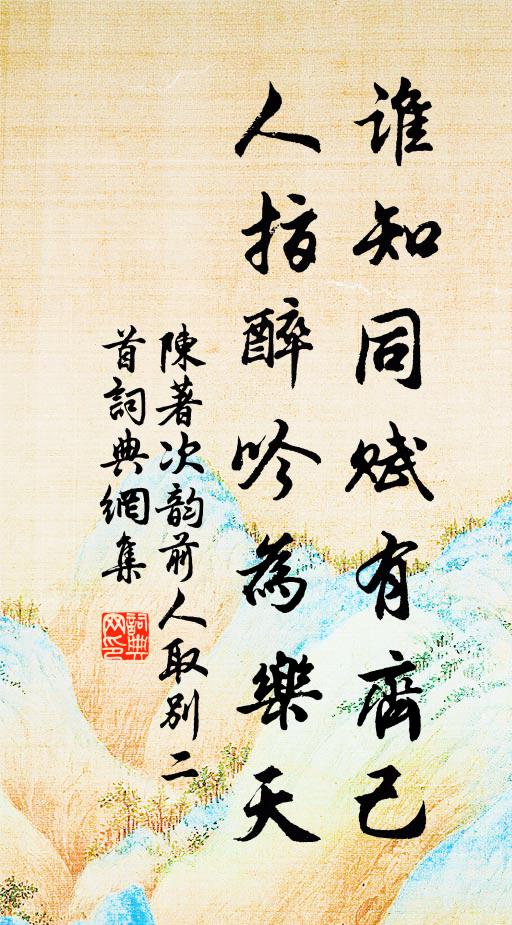 誰知同賦有齊己
人指醉吟為樂天
陳著次韵前人取別二
首詞典網集
詞典网印